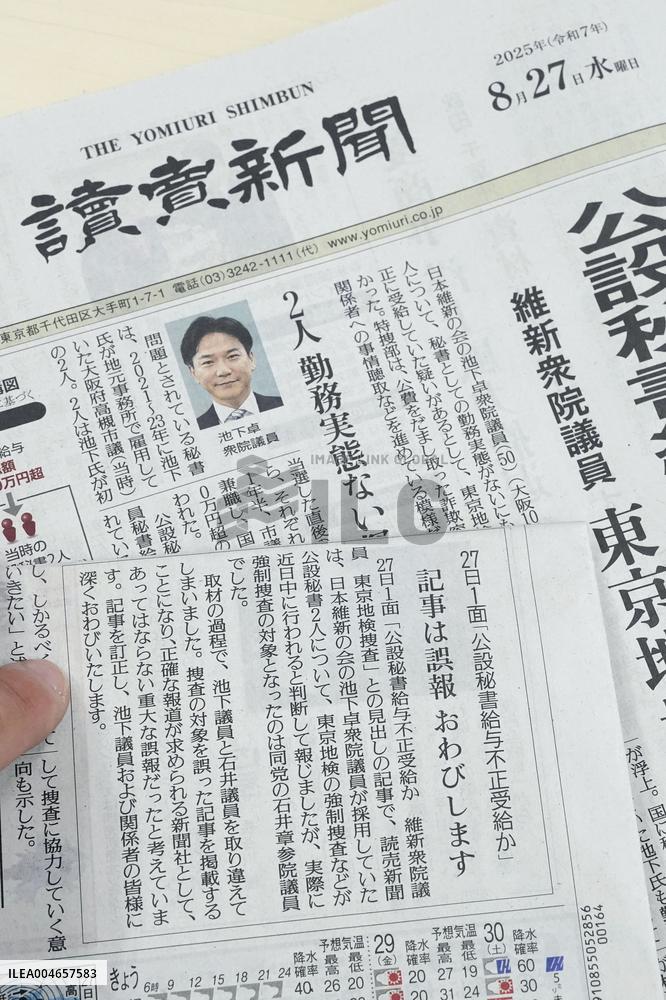 THE YOMIURI SHIMBUN
讀賣新聞
2025年(令和7年)
8月27日水曜日
東京都千代田区大手町1-7-1 電話(03)3242-1111(代) www.yomiuri.co.jp
公設秘書
維新衆院議員
東京地
日本維新の会の池下卓衆院議員(50)(大阪10
人について、秘書としての勤務実態がないに
正に受給していた疑いがあるとして、東京地
かった。特捜部は、公費をだまし取った詐欺
関係者への事情聴取などを進めている模様
2人 勤務実態ない
池下卓
衆院議員
問題とされている秘書
は、2021〜23年に池下
氏が地元事務所で雇用して
いた大阪府高槻市議(当時)
の2人。2人は池下氏が初
当選した直後
らそれぞれ
兼職し、国
0万円超の
われた。
公設秘
員秘書給
れてい
給与
万円超
当時の
27日1面「公設秘書給与不正受給か」
記事は誤報 おわびします
27日1面「公設秘書給与不正受給か 維新衆院議
員 東京地検捜査」との見出しの記事で、読売新聞
は、日本維新の会の池下卓衆院議員が採用していた
公設秘書2人について、東京地検の強制捜査などが
近日中に行われると判断して報じましたが、実際に
強制捜査の対象となったのは同党の石井章参院議員
でした。
取材の過程で、池下議員と石井議員を取り違えて
しまいました。捜査の対象を誤った記事を掲載する
ことになり、正確な報道が求められる新聞社として、
あってはならない重大な誤報だったと考えていま
す。記事を訂正し、池下議員および関係者の皆様に
深くおわびいたします。
して捜査に協力していく意
向も示した。
し、しかるべ
いきたい」と
が浮上。国
きょう 6時 9 12 15 18 21 24 降水確率
予想気温 最高 最低 29(金) 降水確率
予想気温 最高 最低 30(土) 降水確率
40 26 20 20 27 19 60
30 30
10855052856
00164
IMAGE LINK GLOBAL
ILG
ILEA004657583